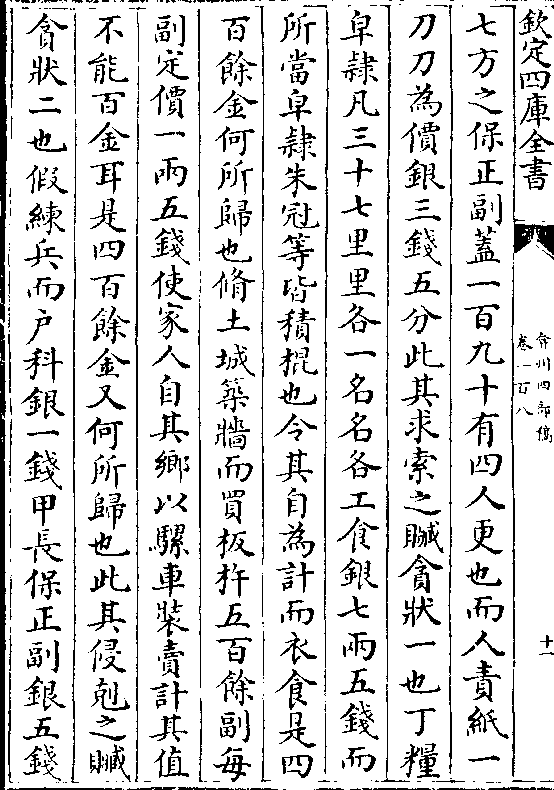 欽定四庫全書
弇州四部稿
卷一百八
十
七方之保正副蓋一百九十有四人更也而人責紙一
刀刀為價銀三錢五分此其求索之贓貪狀一也丁糧
皁隷凡三十七里里各一名名各工食銀七兩五錢而
所當皁隷朱冠等皆積棍也令其自為計而衣食是四
百餘金何所歸也脩土城築牆而買板杵五百餘副每
副定價一兩五錢使家人自其鄉以騾車裝賣計其值
不能百金耳是四百餘金又何所歸也此其侵剋之贓
貪狀二也假練兵而户科銀一錢甲長保正副銀五錢